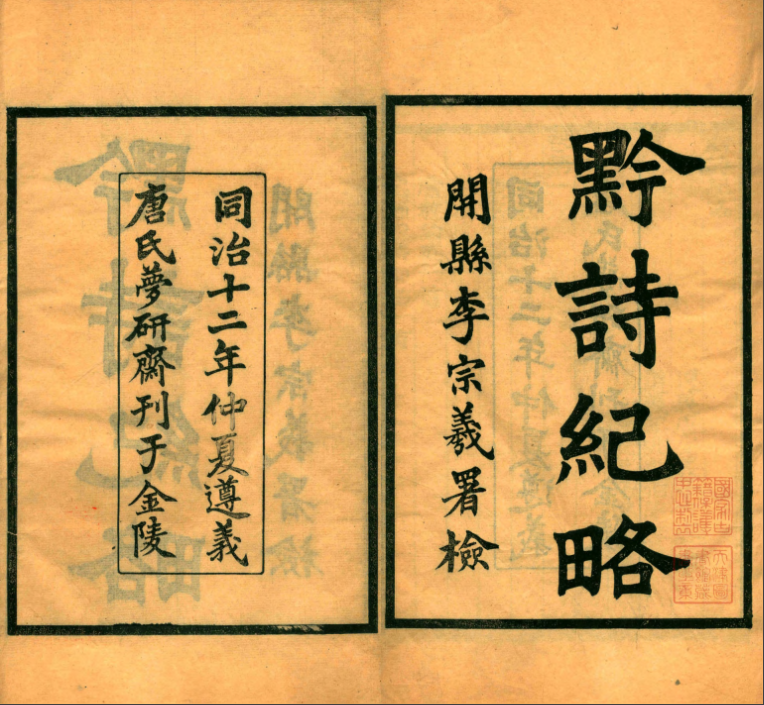 黔詩紀略
開縣李宗羲署檢
同治十二年仲夏遵義
唐氏夢研齋刊于金陵